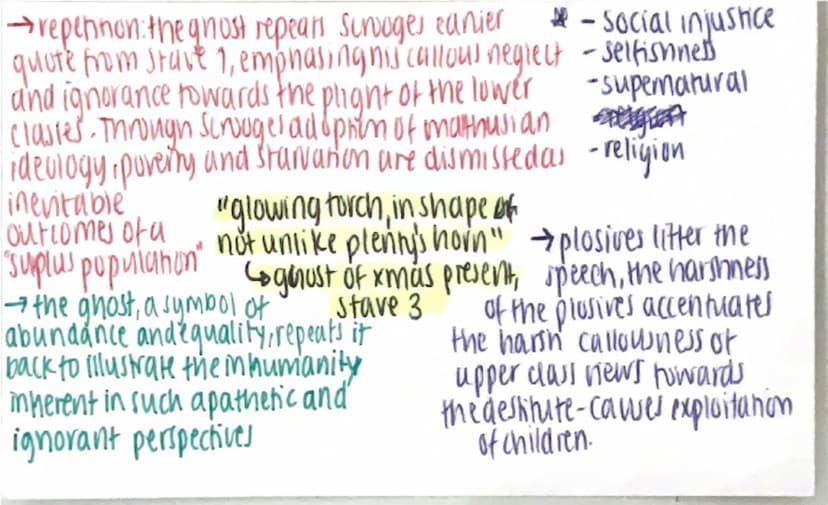 → repetition: the ghost repeats Scrooges earlier
quote from stave 1, emphasising his callous neglect
and ignorance towards the plight of the lower
classes. Through Scrooges adoption of malthusian
ideology, poverty and starvation are dismissed as
inevitable
outcomes of a
"surplus population"
- social injustice
- selfishness
- supernatural
- religion
"glowing torch, in shape of
not unlike plenty's horn"
↳ ghost of xmas present,
stave 3
→ the ghost, a symbol of
abundance and equality, repeats it
back to illustrate the inhumanity
inherent in such apathetic and
ignorant perspectives
→ plosives litter the
speech, the harshness
of the plosives accentuates
the harsh callousness of
upper class views towards
the destitute - causes exploitation
of children.